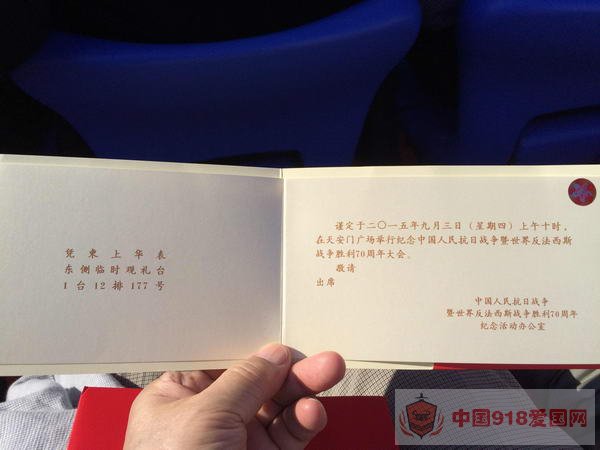 凭柬上华表
东侧临时观礼台
1台12排177号
谨定于二〇一五年九月三日（星期四）上午十时，
在天安门广场举行纪念中国人民抗日战争暨世界反法西斯
战争胜利70周年大会。
敬请
出席
中国人民抗日战争
暨世界反法西斯战争胜利70周年
纪念活动办公室
中国918爱国网